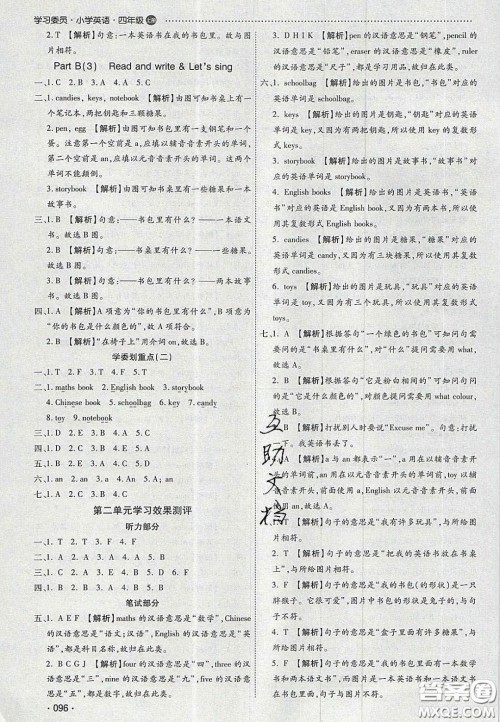 学习委员·小学英语·四年级
2. T 【解析】句意:一本英语书在我的书包里。与图片相符。
Part B(3) Read and write & Let's sing
一、1. C 2. B 3. A 4. A 5. C
二、1. candies, keys, notebook 【解析】由图可知书桌上有一个笔记本,两把钥匙和三颗糖果。
2. pen, egg 【解析】由图可知书包里有一支钢笔和一个蛋。注意第一个空前是 a,应填以辅音音素开头的单词,第二个空前是 an,应填以元音音素开头的单词,两个空不能颠倒。
3. storybook 【解析】由图可知书桌里有一些糖果和一本故事书。
三、1. B 【解析】句意:——书包里有什么?——一本语文书。故选 B 图。
2. B 【解析】句意:——书桌里有什么?——一些糖果。故选 B 图。
3. B 【解析】句意:——书包里有什么?——两本故事书。故选 B 图。
四、1. A 【解析】A 项意为“你的书包里有什么?”B 项意为“你的书包是什么颜色的?”故 A 项符合。
2. B 【解析】“在椅子上”用介词 on,故选 B。
学委划重点(二)
一、1. B 2. C 3. A 4. B 5. A
二、1. maths book 2. English book 3. storybook
4. Chinese book 5. schoolbag 6. candy 7. key
8. toy 9. notebook
三、1. D 2. E 3. B 4. A 5. C
四、1. C 2. D 3. B 4. A
五、1. B 2. B 3. A 4. B 5. A
六、1. an 2. a 3. a 4. an 5. a
七、1. C 2. B 3. A 4. C
第二单元学习效果测评
听力部分
一、1. T 2. T 3. F 4. T 5. F
二、1. A 2. B 3. B 4. A 5. B
三、1. C 2. D 3. B 4. A
笔试部分
五、1. A E F 【解析】maths 的汉语意思是“数学”, Chinese 的汉语意思是“语文;汉语”, English 的汉语意思是“英语”,都是科目名称,故归为此类。
2. B C G J 【解析】four 的汉语意思是“四”, three 的汉语意思是“三”, nine 的汉语意思是“九”, five 的汉语意思是“五”,都是数字,故归为此类。
·096·
3. D H I K 【解析】pencil 的汉语意思是“铅笔”, pen 的汉语意思是“钢笔”, eraser 的汉语意思是“橡皮”, ruler 的汉语意思是“尺子”,都是文具,故归为此类。
六、1. schoolbag 【解析】给出的图片是书包,“书包”对应的英语单词是 schoolbag。
2. keys 【解析】给出的图片是钥匙,“钥匙”对应的英语单词是 key,又因为有两把钥匙,所以使用 key 的复数形式 keys。
3. storybook 【解析】给出的图片是故事书,“故事书”对应的英语单词是 storybook。
4. English books 【解析】给出的图片是英语书,“英语书”对应的英语是 English book,又因为有两本英语书,故用其复数形式 English books。
5. candies 【解析】给出的图片是糖果,“糖果”对应的英语单词是 candy,又因为有三块糖果,所以使用 candy 的复数形式 candies。
6. toys 【解析】给出的图片是玩具,“玩具”对应的英语单词是 toy,又因为有三个玩具,所以使用其复数形式 toys。
七、1. A 【解析】根据答句“一个可爱的书包”可知问句需要问的是“是什么”,对“是什么”提问需要用 what。故选 A。
2. A 【解析】根据答句“它是粉白相间的”可知问句需要问的是“它是什么颜色的”,对颜色提问需要用 what colour。故选 A。
3. B 【解析】打扰别人时要说“Excuse me”。句意:打扰一下。我英语书丢了。故选 B。
4. A 【解析】a 与 an 都表示“一”, a 用在以辅音音素开头的单词前, an 用在以元音音素开头的单词前, English 是以元音音素开头的单词,前面应用 an,故选 A。
八、1. T 【解析】句子的意思是“我有许多玩具”,与所给图片相符。
2. T 【解析】句子的意思是“把我的英语书放在书桌上”,与所给图片相符。
3. F 【解析】句子的意思是“我的书包(的形状)是一只胖猴子”。因为图片中书包的形状是兔子的,与句子意思不符。
4. T 【解析】句子的意思是“盒子里面有许多糖果”,与所给图片相符。
5. F 【解析】句子的意思是“在我的书包里有一本语文书和两本英语书”。而图片中英语书和语文书各有一本,与句子意思不符。
互助文档
答案圈
MXQE.COM